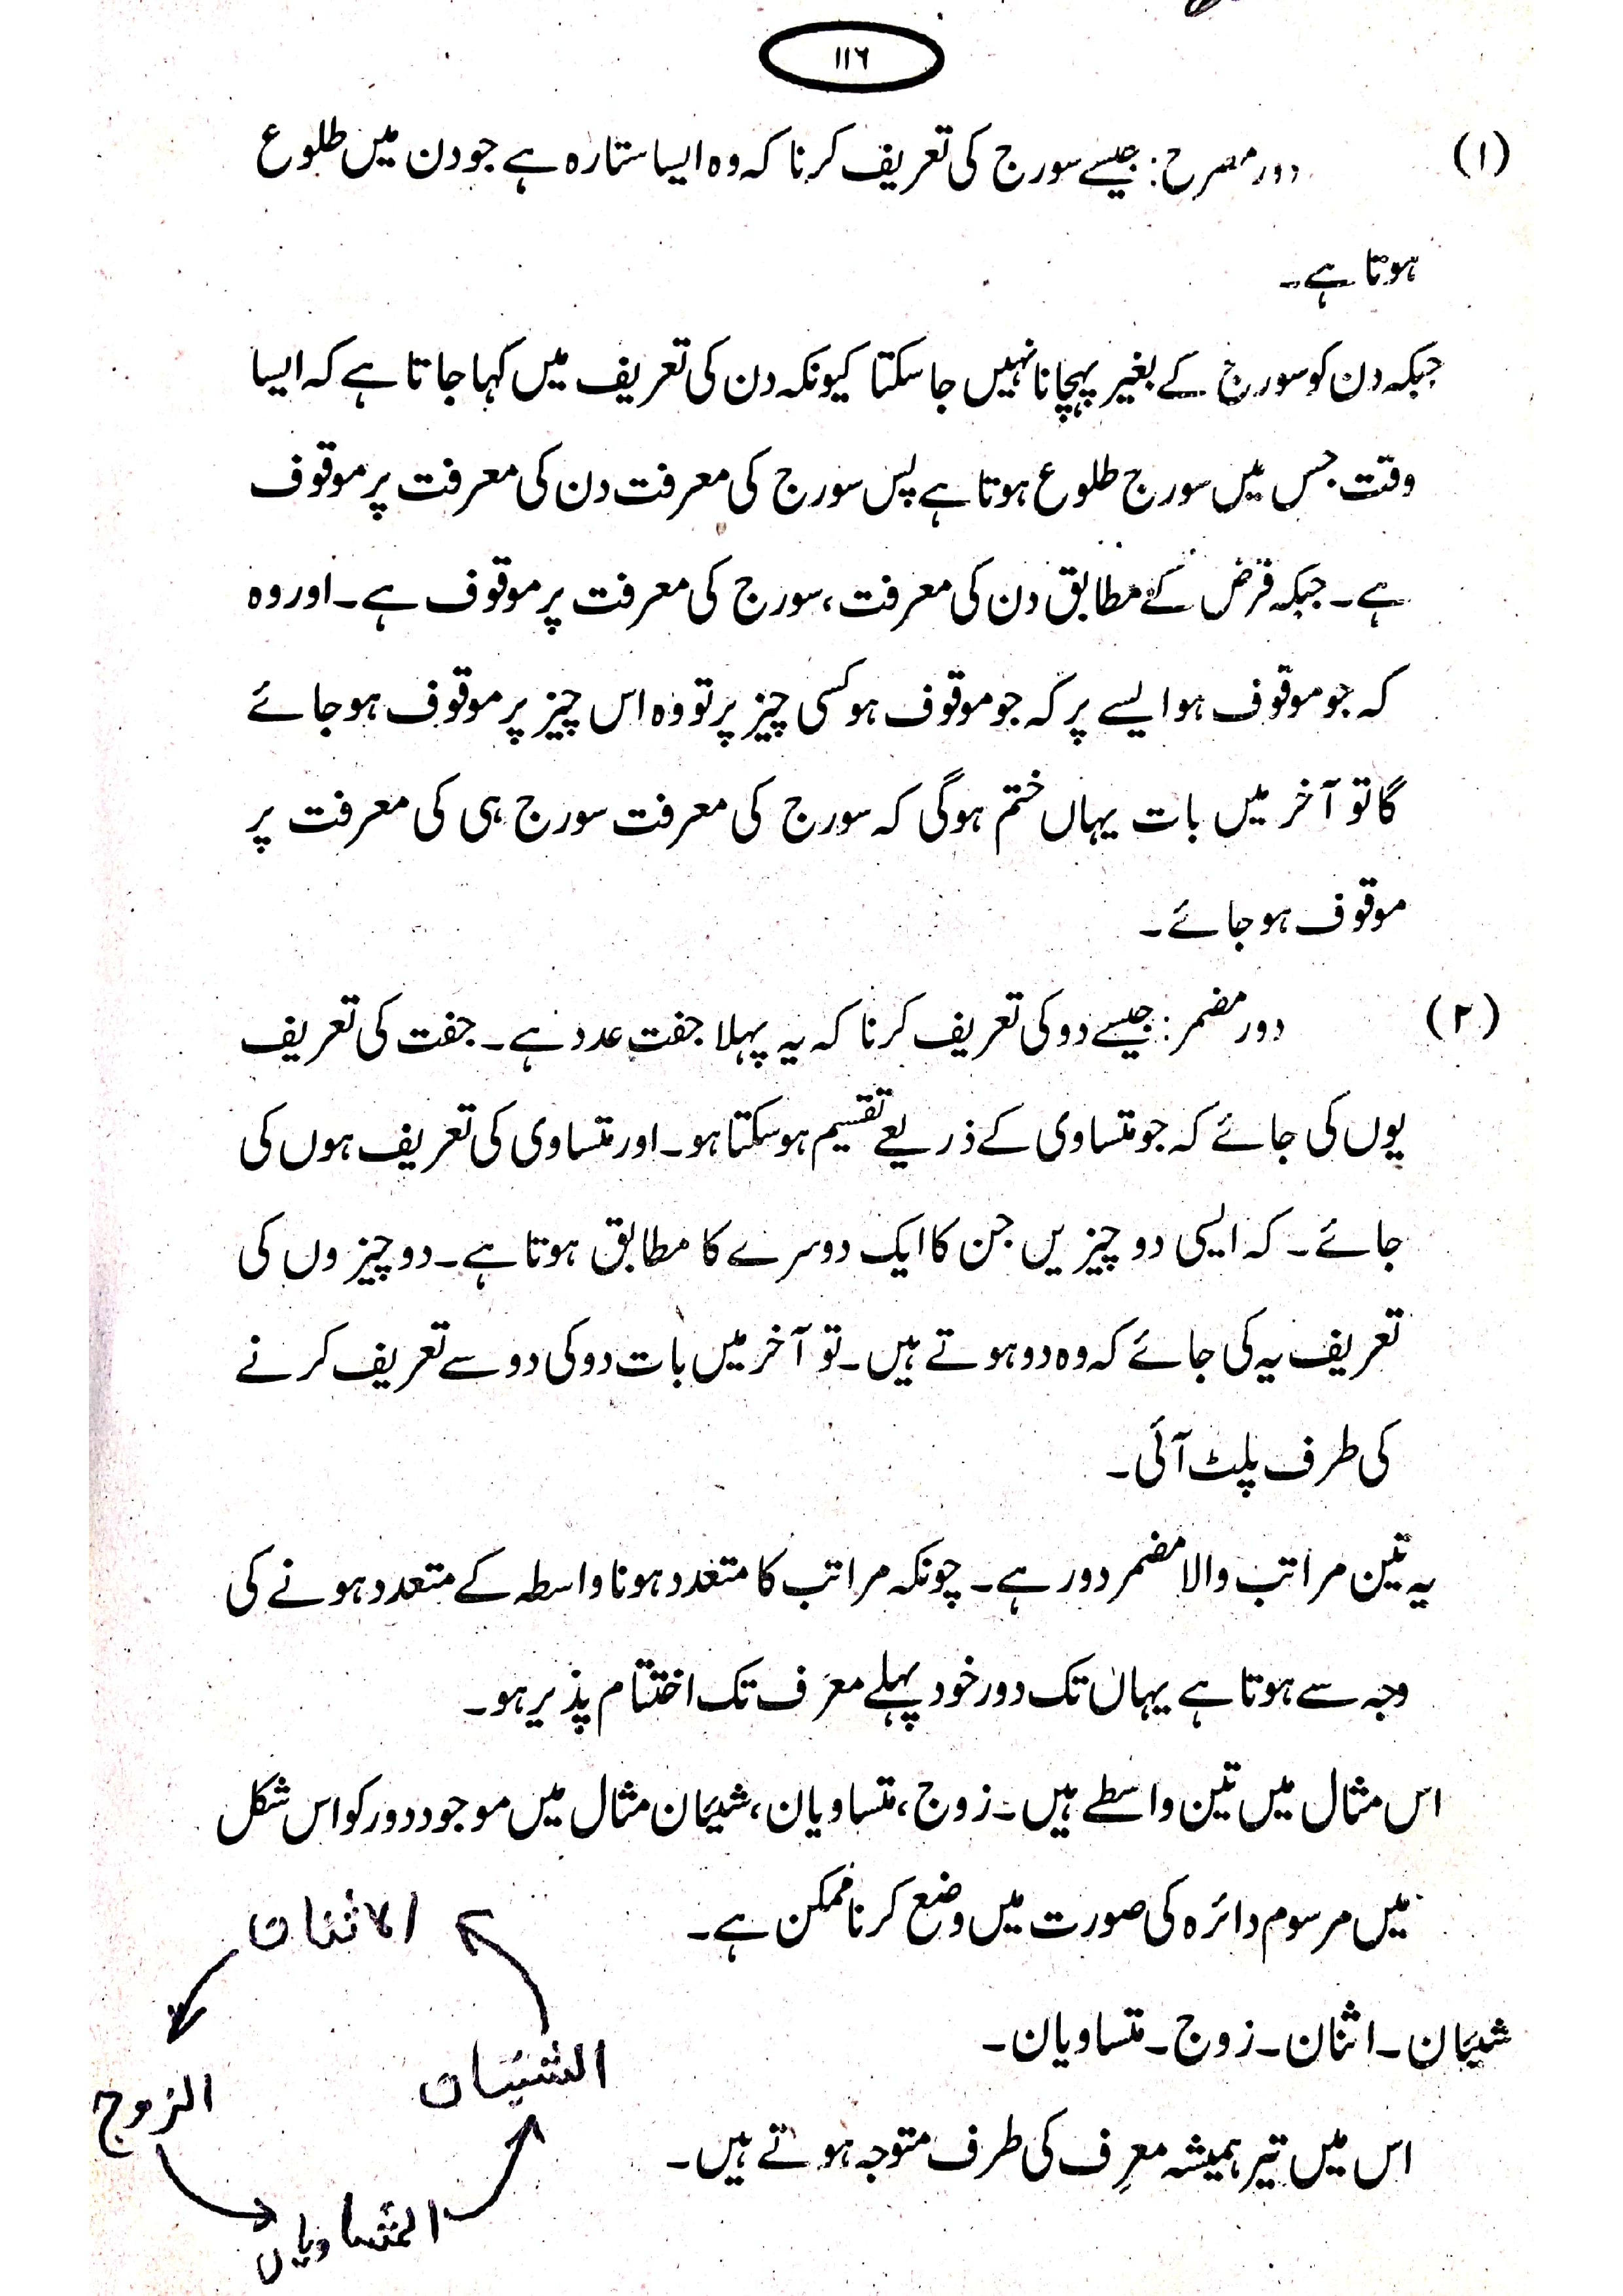 ١١٦
(١) دور مصرح: جیسے سورج کی تعریف کرنا کہ وہ ایسا ستارہ ہے جو دن میں طلوع
ہوتا ہے۔
جبکہ دن کو سورج کے بغیر پہچانا نہیں جا سکتا کیونکہ دن کی تعریف میں کہا جاتا ہے کہ ایسا
وقت جس میں سورج طلوع ہوتا ہے پس سورج کی معرفت دن کی معرفت پر موقوف
ہے۔ جبکہ فرض کے مطابق دن کی معرفت، سورج کی معرفت پر موقوف ہے۔ اور وہ
کہ جو موقوف ہو ایسے پر کہ جو موقوف ہو کسی چیز پر تو وہ اس چیز پر موقوف ہو جائے
گا تو آخر میں بات یہاں ختم ہوگی کہ سورج کی معرفت سورج ہی کی معرفت پر
موقوف ہو جائے۔
(٢) دور مضمر: جیسے دو کی تعریف کرنا کہ یہ پہلا جفت عدد ہے۔ جفت کی تعریف
یوں کی جائے کہ جو متساوی کے ذریعے تقسیم ہو سکتا ہو۔ اور متساوی کی تعریف ہوں کی
جائے۔ کہ ایسی دو چیزیں جن کا ایک دوسرے کا مطابق ہوتا ہے۔ دو چیزوں کی
تعریف یہ کی جائے کہ وہ دو ہوتے ہیں۔ تو آخر میں بات دو کی دو سے تعریف کرنے
کی طرف پلٹ آئی۔
یہ تین مراتب والا مضمر دور ہے۔ چونکہ مراتب کا متعدد ہونا واسطہ کے متعدد ہونے کی
وجہ سے ہوتا ہے یہاں تک دور خود پہلے معرَف تک اختتام پذیر ہو۔
اس مثال میں تین واسطے ہیں۔ زوج، متساویان، شیئان مثال میں موجود دور کو اس شکل
میں مرسوم دائرہ کی صورت میں وضع کرنا ممکن ہے۔
شیئان۔ اثنان۔ زوج۔ متساویان۔
اس میں تیر ہمیشہ معرِف کی طرف متوجہ ہوتے ہیں۔
الاثنان
الشیئان
الزوج
المتساویان